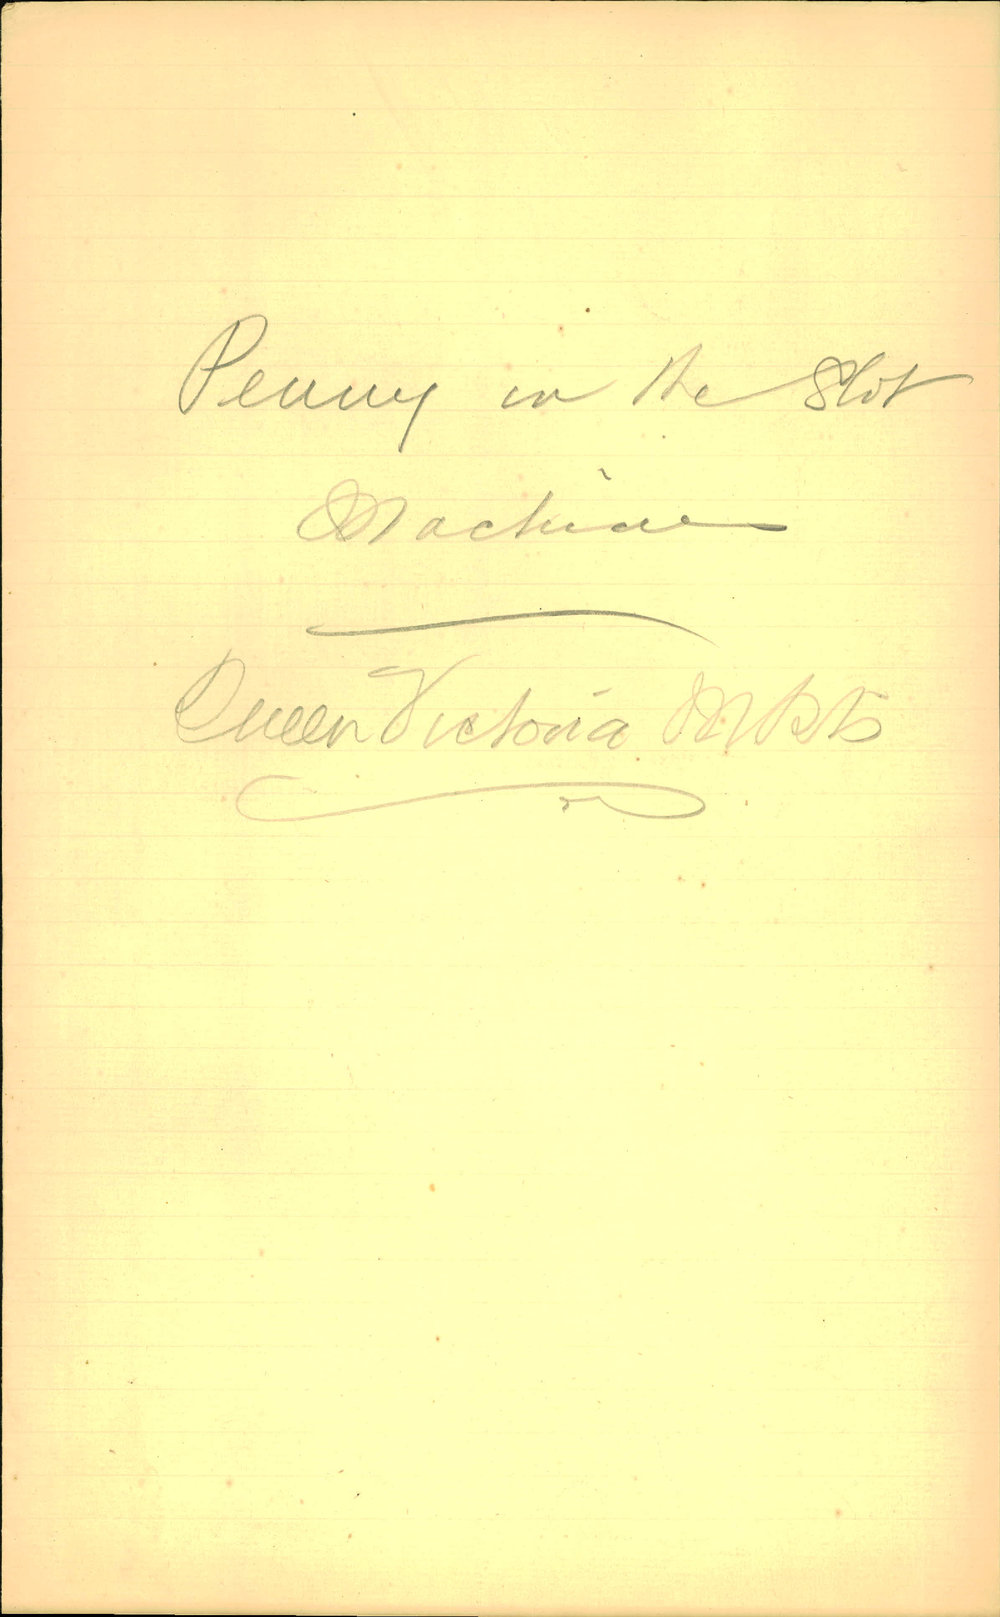 Penny in the Slot
Machine
Queen Victoria Mkts